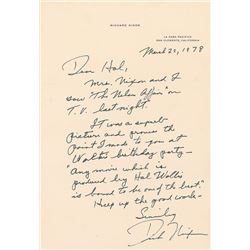 RICHARD NIXON
LA CASA PACIFICA
SAN CLEMENTE, CALIFORNIA
March 20, 1978
Dear Hal,
Mrs. Nixon and I
saw "The Nelson Affair" on
T.V. last night.
It was a superb
picture and proves the
point I made to you at
Walter's birthday party—
"Any movie which is
produced by Hal Wallis
is bound to be one of the best."
Keep up the good work—
Sincerely
Dick Nixon